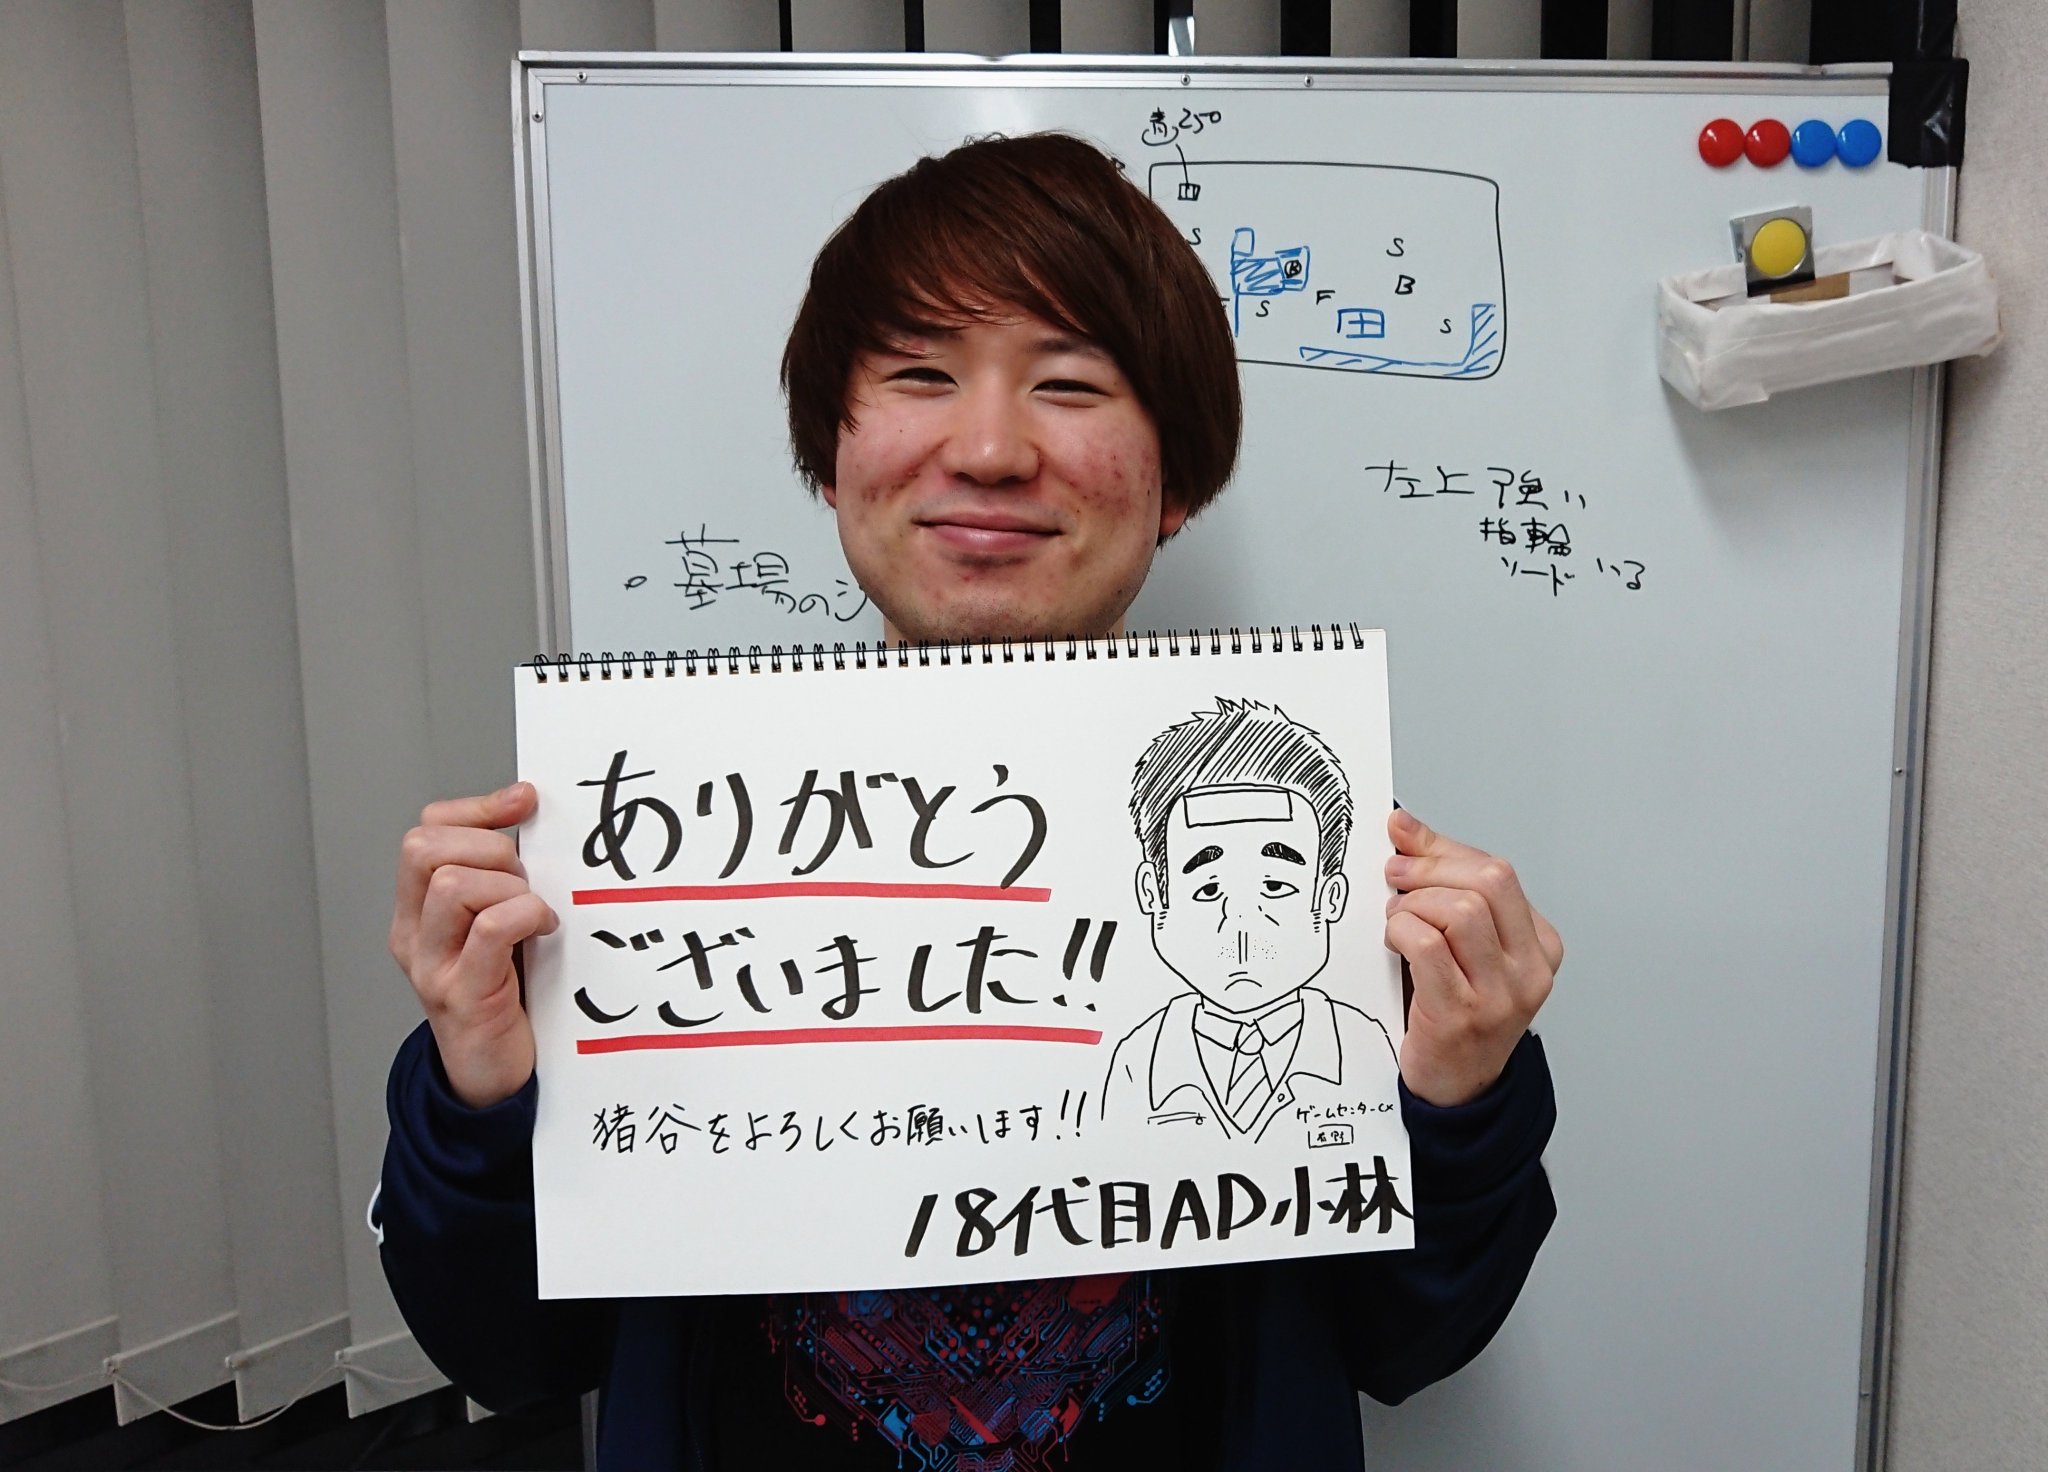 青250
S
S
B
B
S
F
S
左上強い
指輪
ソードいる
・墓場のジ
ありがとう
ございました!!
猪谷をよろしくお願いします!!
ゲームセンターCX
有野
18代目AD小林